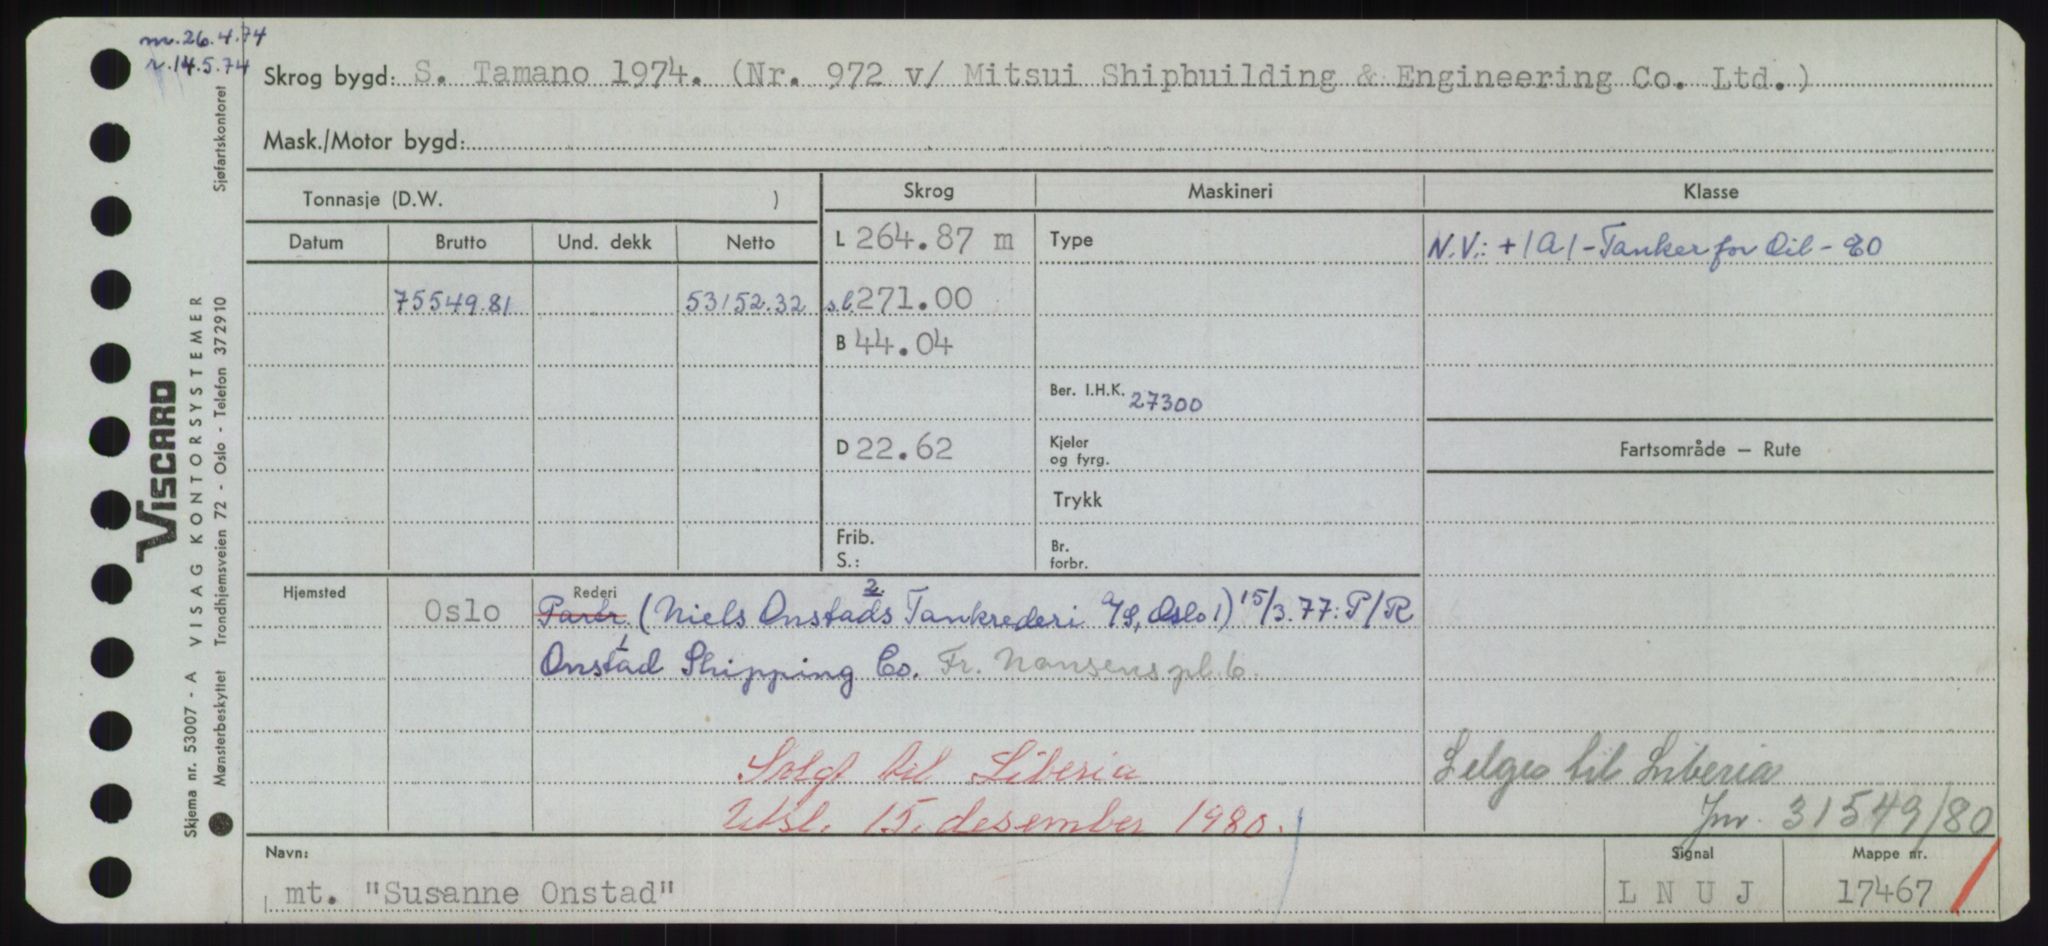 m. 26.4.74
r. 14.5.74
Skrog bygd: S. Tamano 1974. (Nr. 972 v/ Mitsui Shipbuilding & Engineering Co. Ltd.)
Mask./Motor bygd:
Tonnasje (D.W. )
Skrog
Maskineri
Klasse
Datum Brutto Und. dekk Netto
L 264.87 m
Type
N.V.: +1A1 - Tanker for Oil - E0
75549.81 53152.32
s.l. 271.00
B 44.04
Ber. I.H.K. 27300
D 22.62
Kjeler
og fyrg.
Fartsområde — Rute
Trykk
Frib.
S.:
Br.
forbr.
Hjemsted
Oslo
Rederi
Partr. (Niels Onstads 2 Tankrederi A/S, Oslo 1) 15/3.77: P/R
Onstad Shipping Co. Fr. Nansens pl. 6.
Solgt til Liberia
Utsl. 15. desember 1980.
Selges til Liberia
Jnr. 31549/80
Navn:
mt. "Susanne Onstad"
Signal
L N U J
Mappe nr.
17467
VISCARD
Skjema nr. 53007 - A VISAG KONTORSYSTEMER
Mønsterbeskyttet Trondhjemsveien 72 - Oslo - Telefon 372910 Sjøfartskontoret